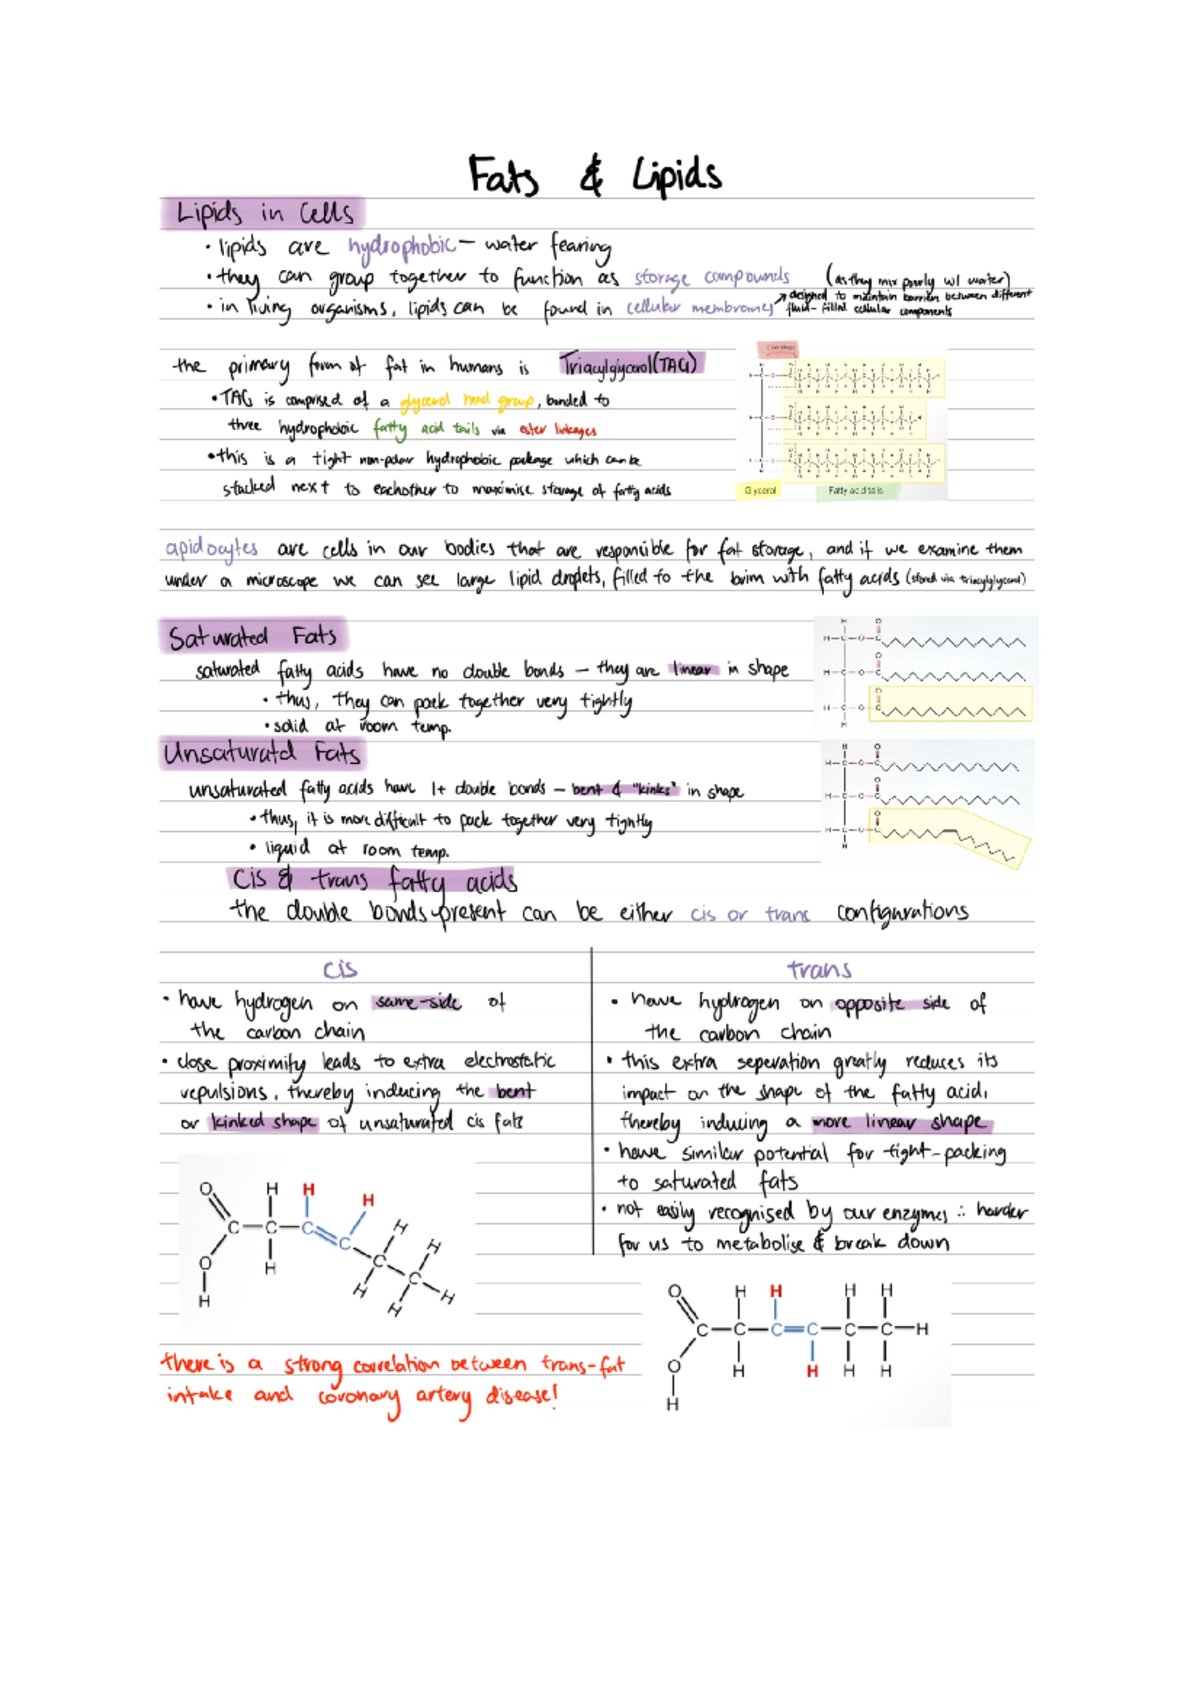 Fats & Lipids
Lipids in Cells
• lipids are hydrophobic – water fearing
• they can group together to function as storage compounds (as they mix poorly w/ water)
• in living organisms, lipids can be found in cellular membranes ↗ designed to maintain barriers between different
fluid-filled cellular components
the primary form of fat in humans is Triacylglycerol (TAG)
• TAG is comprised of a glycerol head group, bonded to
three hydrophobic fatty acid tails via ester linkages
• this is a tight non-polar hydrophobic package which can be
stacked next to eachother to maximise storage of fatty acids
Glycerol Fatty acid tails
apidocytes are cells in our bodies that are responsible for fat storage, and if we examine them
under a microscope we can see large lipid droplets, filled to the brim with fatty acids (stored via triacylglycerol)
Saturated Fats
saturated fatty acids have no double bonds – they are linear in shape
• thus, they can pack together very tightly
• solid at room temp.
Unsaturatd Fats
unsaturated fatty acids have 1+ double bonds – bent & "kinks" in shape
• thus, it is more difficult to pack together very tightly
• liquid at room temp.
Cis & trans fatty acids
the double bonds present can be either cis or trans configurations
cis
• have hydrogen on same-side of
the carbon chain
• close proximity leads to extra electrostatic
repulsions, thereby inducing the bent
or kinked shape of unsaturated cis fats
trans
• have hydrogen on opposite side of
the carbon chain
• this extra seperation greatly reduces its
impact on the shape of the fatty acid,
thereby inducing a more linear shape
• have similar potential for tight-packing
to saturated fats
• not easily recognised by our enzymes ∴ harder
for us to metabolise & break down
O H H H
C C C C H H
O H C C
H H H H
there is a strong correlation between trans-fat
intake and coronary artery disease!
O H H H H
C–C–C=C–C–C–H
O H H H H
H